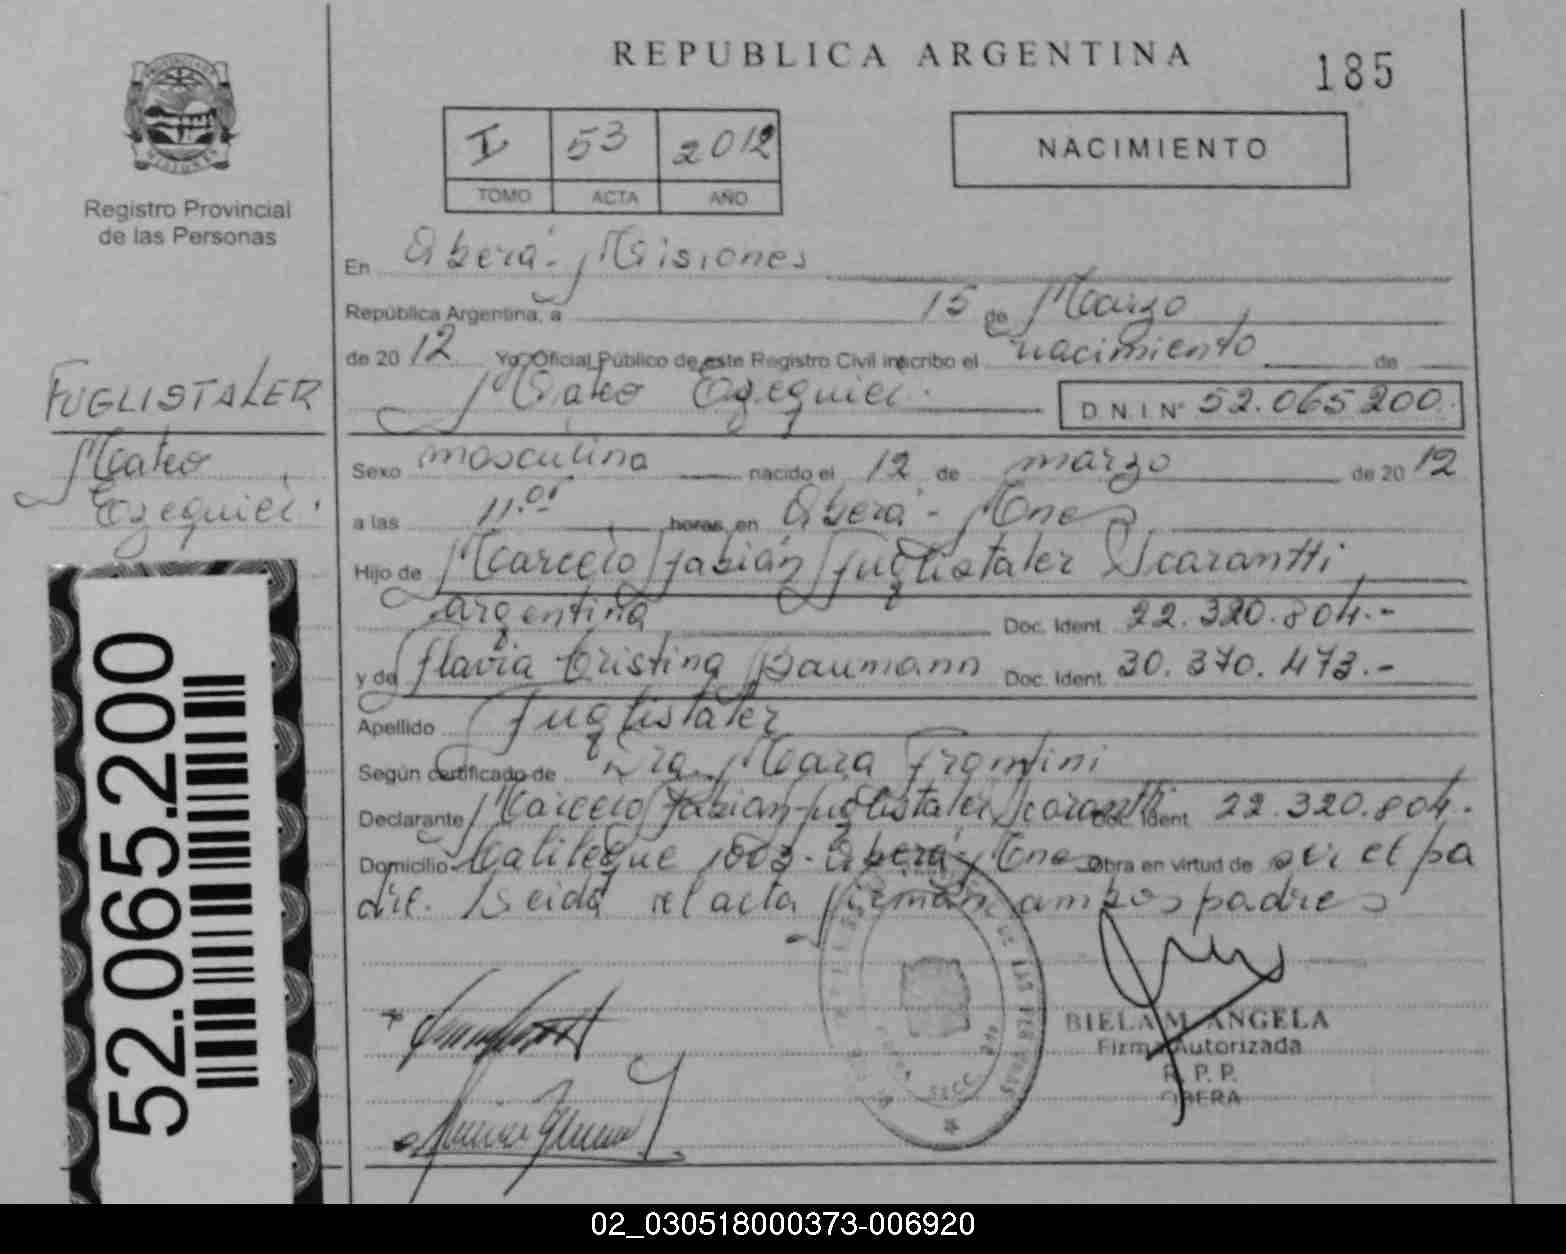 REPUBLICA ARGENTINA
185
I 53 2012
TOMO ACTA AÑO
NACIMIENTO
Registro Provincial
de las Personas
En Oberá - Misiones
República Argentina, a 15 de Marzo
de 2012 Yo, Oficial Público de este Registro Civil inscribo el nacimiento de
Mateo Ezequiel.
D.N.I. Nº 52.065.200.
FUGLISTALER
Mateo
Ezequiel.
Sexo masculino nacido el 12 de marzo de 2012
a las 11.05 horas, en Oberá - Mnes
Hijo de Marcelo Fabián Fuglistaler Scarantti
argentina Doc. Ident. 22.320.804.-
y de Flavia Cristina Baumann Doc. Ident. 30.370.473.-
Apellido Fuglistaler
Según certificado de Dra. Mara
Declarante Marcelo Fabián Fuglistaler Scarantti Doc. Ident. 22.320.804.
Domicilio 1003 - Oberá, Mnes Obra en virtud de ser el pa
dre. Leida el acta firman ambos padres
BIELA M. ANGELA
Firma Autorizada
R. P. P.
OBERA
52.065.200
02_030518000373-006920